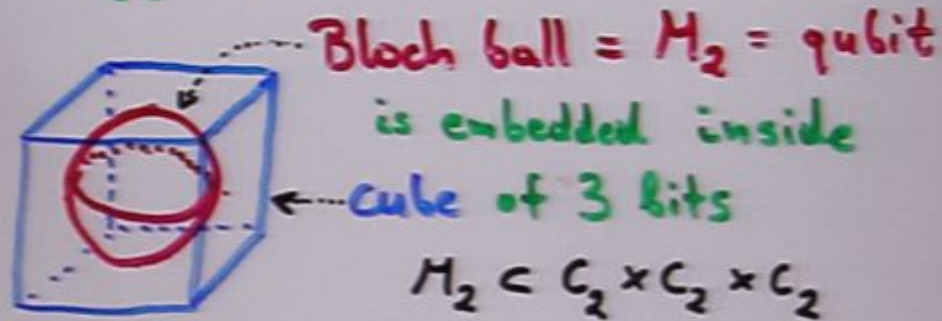 Bloch ball = M₂ = qubit
is embedded inside
cube of 3 bits
M₂ ⊂ C₂ × C₂ × C₂